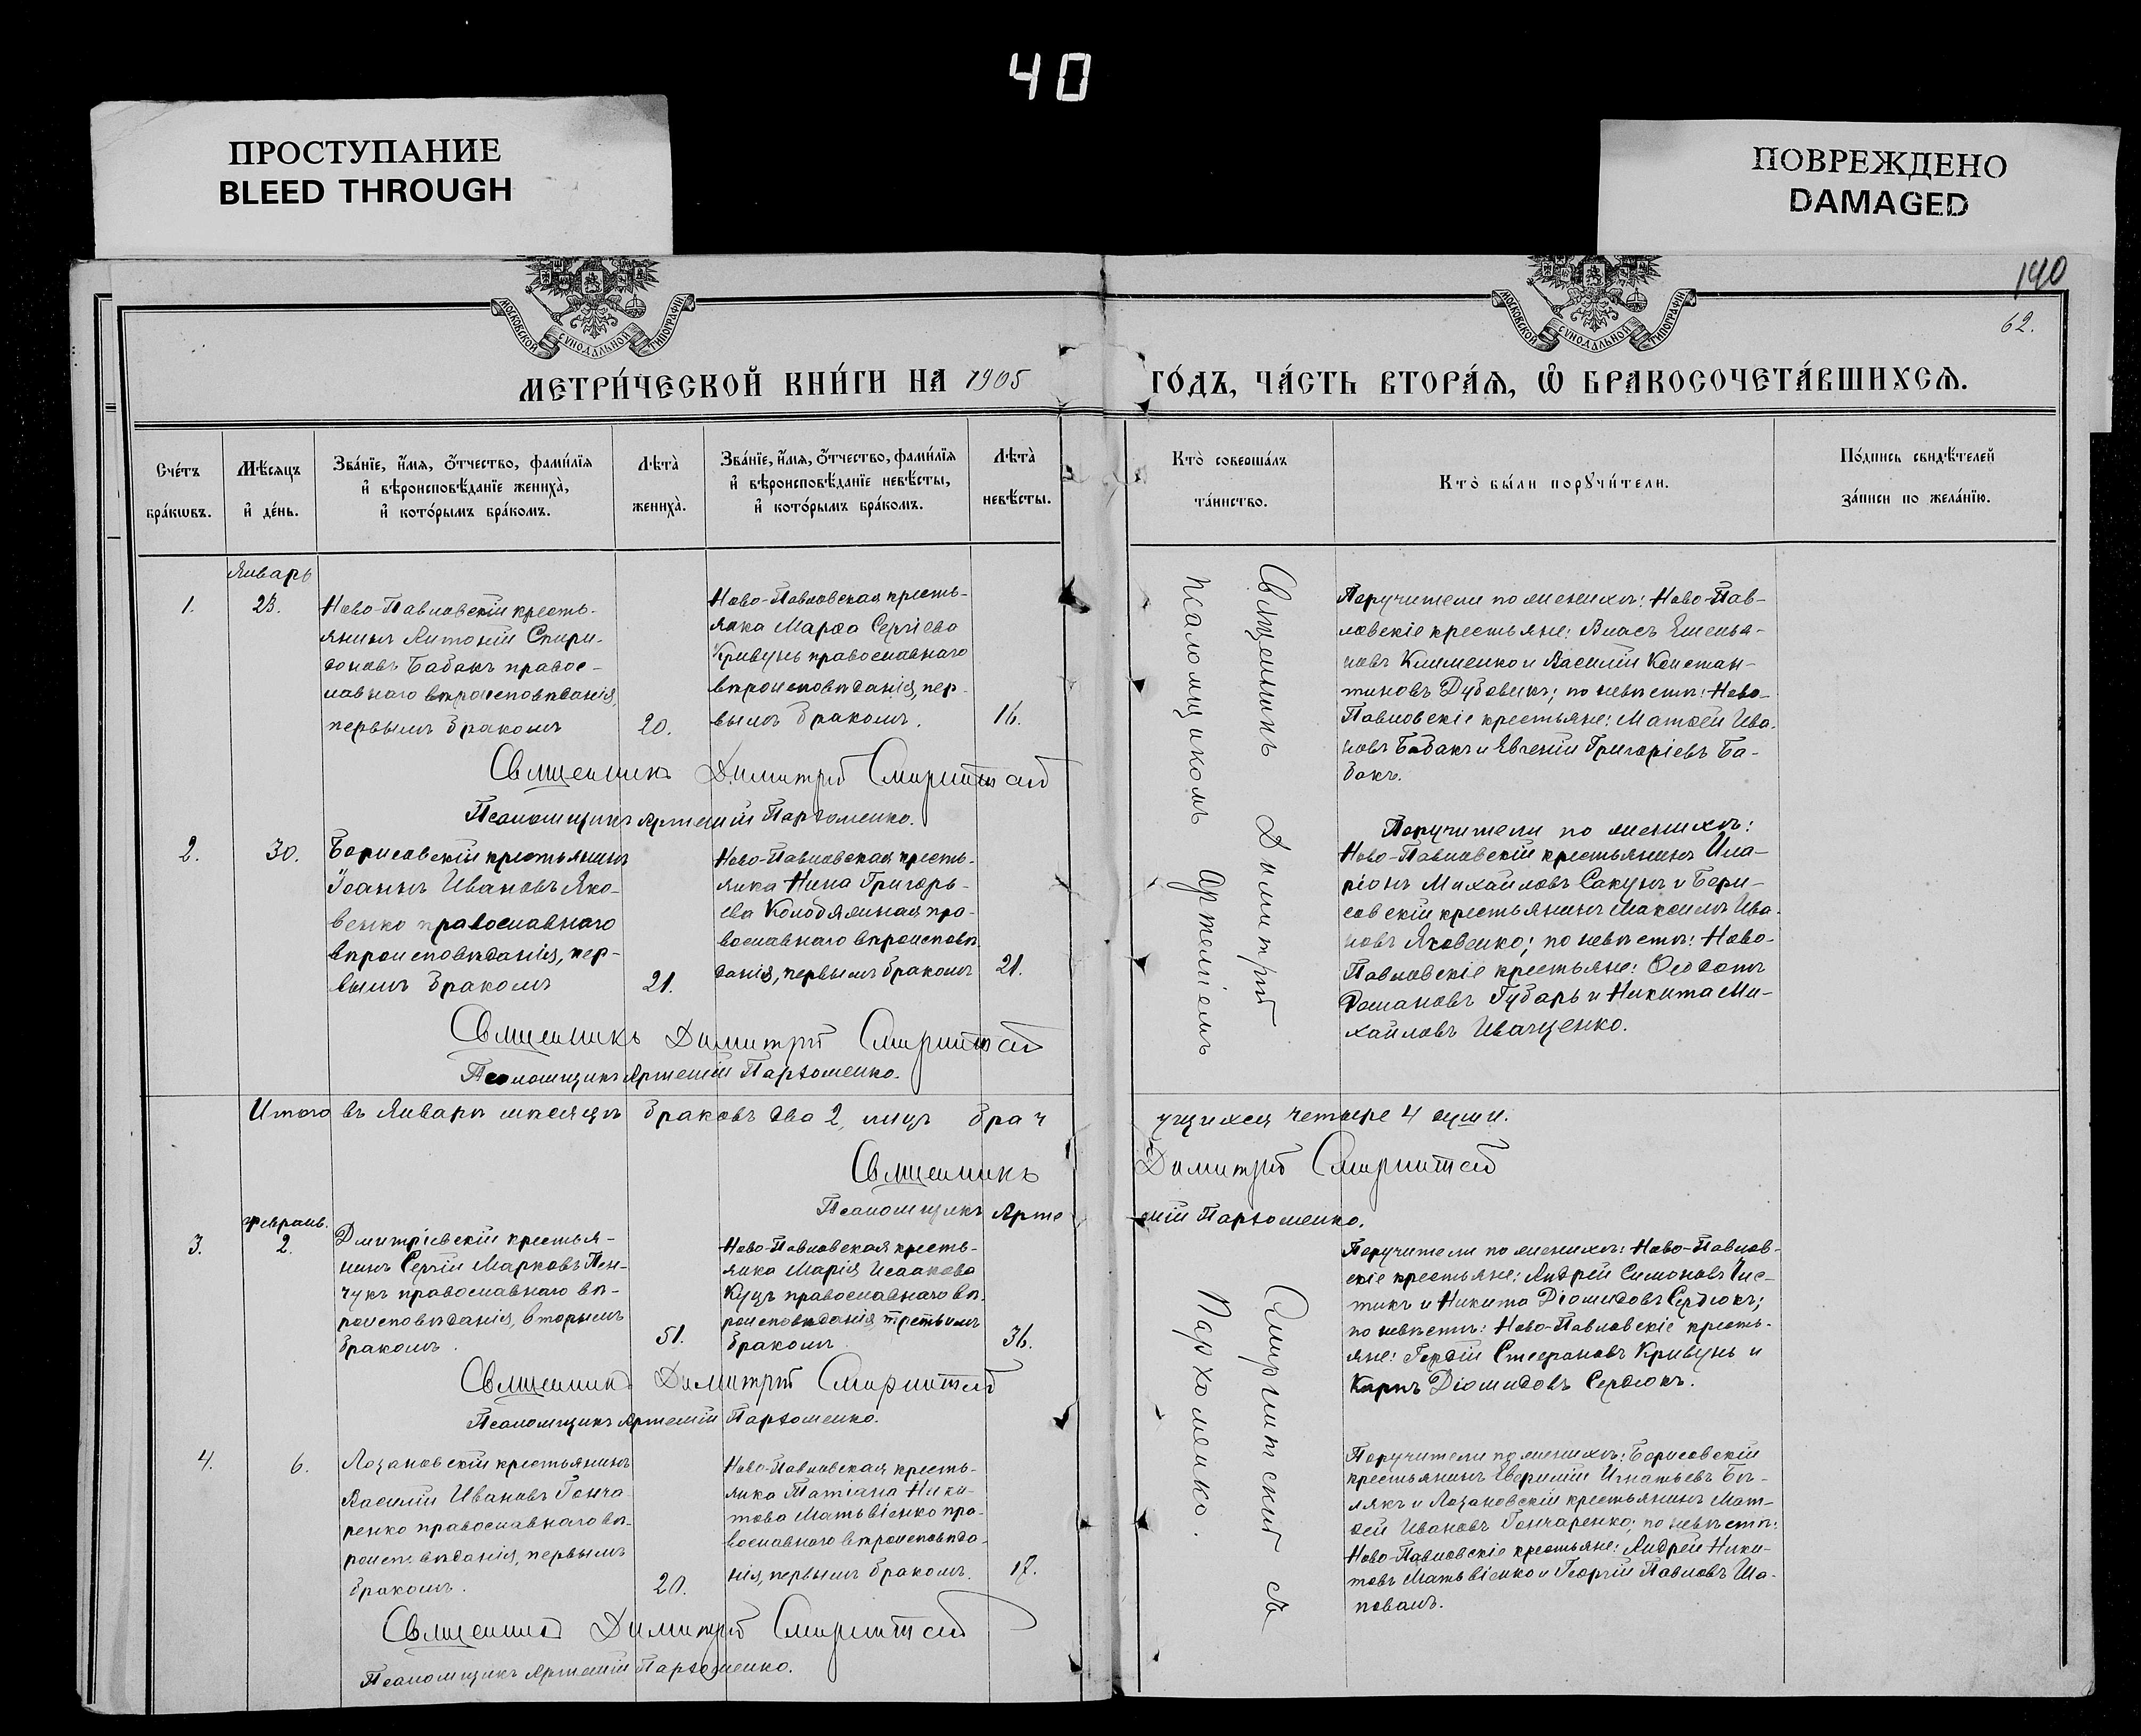 40
ПРОСТУПАНИЕ
BLEED THROUGH
ПОВРЕЖДЕНО
DAMAGED
МОСКОВСКОЙ СѴНОДАЛЬНОЙ ТИПОГРАФІИ
МОСКОВСКОЙ СѴНОДАЛЬНОЙ ТИПОГРАФІИ
140
62.
МЕТРИ́ЧЕСКОЙ КНИ́ГИ НА 1905
ГО́ДЪ, ЧА́СТЬ ВТОРА́Ѧ, Ѽ БРАКОСОЧЕТА́ВШИХСѦ.
Сче́тъ
бра́кѡвъ.
Мѣ́сяцъ
и҆ де́нь.
Зва́нїе, и҆́мя, ѻ҆́тчество, фами́лїя
и҆ вѣроисповѣ́данїе жениха̀,
и҆ кото́рымъ бра́комъ.
Лѣта̀
жениха̀.
Зва́нїе, и҆́мя, ѻ҆́тчество, фами́лїя
и҆ вѣроисповѣ́данїе невѣ́сты,
и҆ кото́рымъ бра́комъ.
Лѣта̀
невѣ́сты.
Кто̀ соверша́лъ
та́инство.
Кто̀ бы́ли порꙋчи́тели.
По́дпись свидѣ́телей
за́писи по жела́нїю.
Январь
1.
23.
Ново-Павловскій кресть-
янинъ Антоній Спири-
доновъ Бабакъ правос-
лавнаго вѣроисповѣданія,
первымъ бракомъ
20.
Ново-Павловская кресть-
янка Марѳа Сергіева
Кривунь православнаго
вѣроисповѣданія, пер-
вымъ бракомъ.
16.
Поручители по женихѣ: Ново-Пав-
ловскіе крестьяне: Власъ Емелья-
новъ Клименко и Василій Констан-
тиновъ Дубовикъ; по невѣстѣ: Ново-
Павловскіе крестьяне: Матѳей Ива-
новъ Бабакъ и Евгеній Григоріевъ Ба-
бакъ.
Священникъ Димитрій
Псаломщикъ Артемій Пархоменко.
2.
30.
Борисовскій крестьянинъ
Іоаннъ Ивановъ Яко-
венко православнаго
вѣроисповѣданія, пер-
вымъ бракомъ
21.
Ново-Павловская кресть-
янка Нина Григорь-
ева Колодяжная пра-
вославнаго вѣроисповѣ-
данія, первымъ бракомъ
21.
Поручители по женихѣ:
Ново-Павловскій крестьянинъ Ила-
ріонъ Михайловъ Сакунъ и Бори-
совскій крестьянинъ Максимъ Ива-
новъ Яковенко; по невѣстѣ: Ново-
Павловскіе крестьяне: Ѳеодотъ
Романовъ Губарь и Никита Ми-
хайловъ Иващенко.
Священникъ Димитрій
Псаломщикъ Артемій Пархоменко.
Итого въ Январѣ мѣсяцѣ браковъ два 2, лицъ брач
ущихся четыре 4 души.
Священникъ Димитрій
Псаломщикъ Арте
мій Пархоменко.
Феврал.
3.
2.
Дмитріевскій крестья-
нинъ Сергій Марковъ Пен-
чукъ православнаго вѣ-
роисповѣданія, вторымъ
бракомъ.
51.
Ново-Павловская кресть-
янка Марія Исаакова
Куцъ православнаго вѣ-
роисповѣданія, третьимъ
бракомъ
36.
Поручители по женихѣ: Ново-Павлов-
скіе крестьяне: Андрей Симоновъ Чис-
тикъ и Никита Діомидовъ Сердюкъ;
по невѣстѣ: Ново-Павловскіе кресть-
яне: Гордій Стефановъ Кривунь и
Карпъ Діомидовъ Сердюкъ.
Священникъ Димитрій
Псаломщикъ Артемій Пархоменко.
4.
6.
Лозановскій крестьянинъ
Василій Ивановъ Гонча-
ренко православнаго вѣ-
роисповѣданія, первымъ
бракомъ.
20.
Ново-Павловская кресть-
янка Татіана Ники-
това Матьвіенко пра-
вославнаго вѣроисповѣда-
нія, первымъ бракомъ.
17.
Поручители по женихѣ: Борисовскій
крестьянинъ Евфимій Игнатьевъ Бѣ-
лякъ и Лозановскій крестьянинъ Мат-
ѳей Ивановъ Гончаренко; по невѣстѣ:
Ново-Павловскіе крестьяне: Андрей Ники-
товъ Матьвіенко и Георгій Павловъ Ша-
повалъ.
Священникъ Димитрій
Псаломщикъ Артемій Пархоменко.
Священникъ Димитрій съ
псаломщикомъ Артеміемъ Пархоменко.